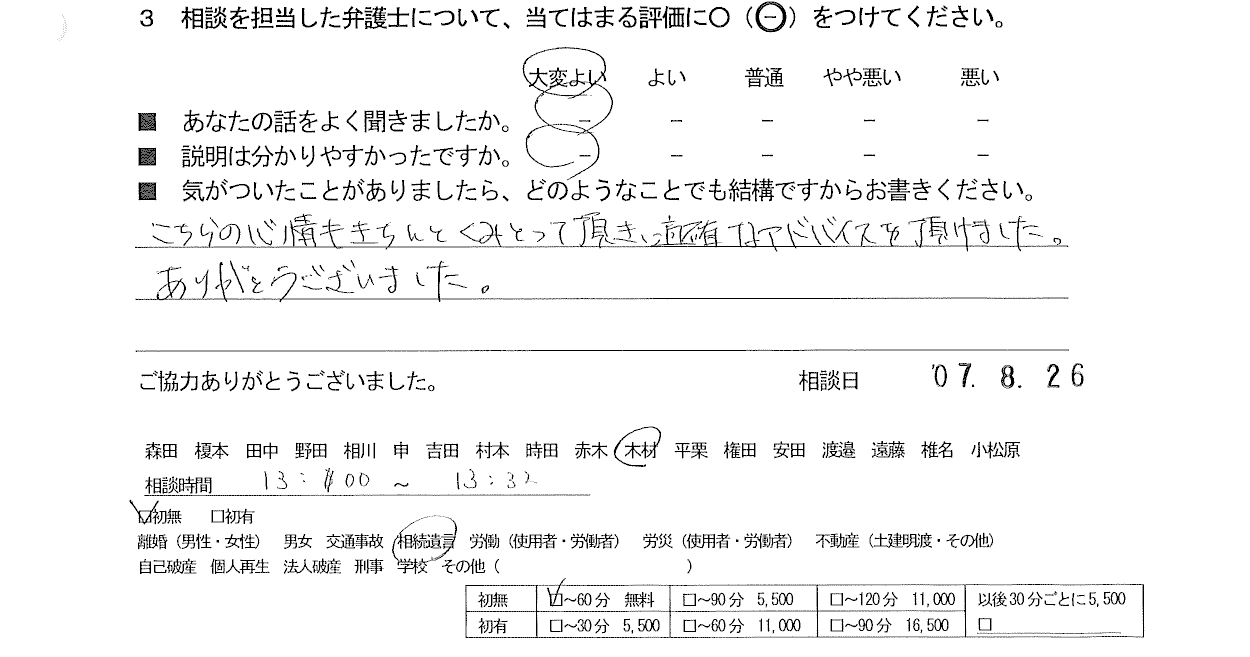 3 相談を担当した弁護士について、当てはまる評価に○（⊖）をつけてください。
大変よい よい 普通 やや悪い 悪い
■ あなたの話をよく聞きましたか。 － － － － －
■ 説明は分かりやすかったですか。 － － － － －
■ 気がついたことがありましたら、どのようなことでも結構ですからお書きください。
こちらの心情もきちんとくみとって頂き、適確なアドバイスを頂けました。
ありがとうございました。
ご協力ありがとうございました。 相談日 '07. 8. 26
森田 榎本 田中 野田 相川 申 吉田 村本 時田 赤木 木村 平栗 権田 安田 渡邉 遠藤 椎名 小松原
相談時間 13:00 ～ 13:32
☑初無 □初有
離婚（男性・女性） 男女 交通事故 相続遺言 労働（使用者・労働者） 労災（使用者・労働者） 不動産（土建明渡・その他）
自己破産 個人再生 法人破産 刑事 学校 その他（ ）
初無 ☑～60分 無料 □～90分 5,500 □～120分 11,000 以後30分ごとに5,500
初有 □～30分 5,500 □～60分 11,000 □～90分 16,500 □